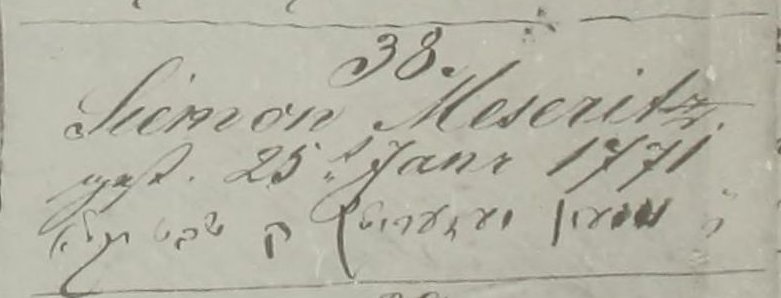 38.
Siemon Meseritz.
gest. 25t Janr 1771
ר' שמעון מעזעריטץ שבט תקלא